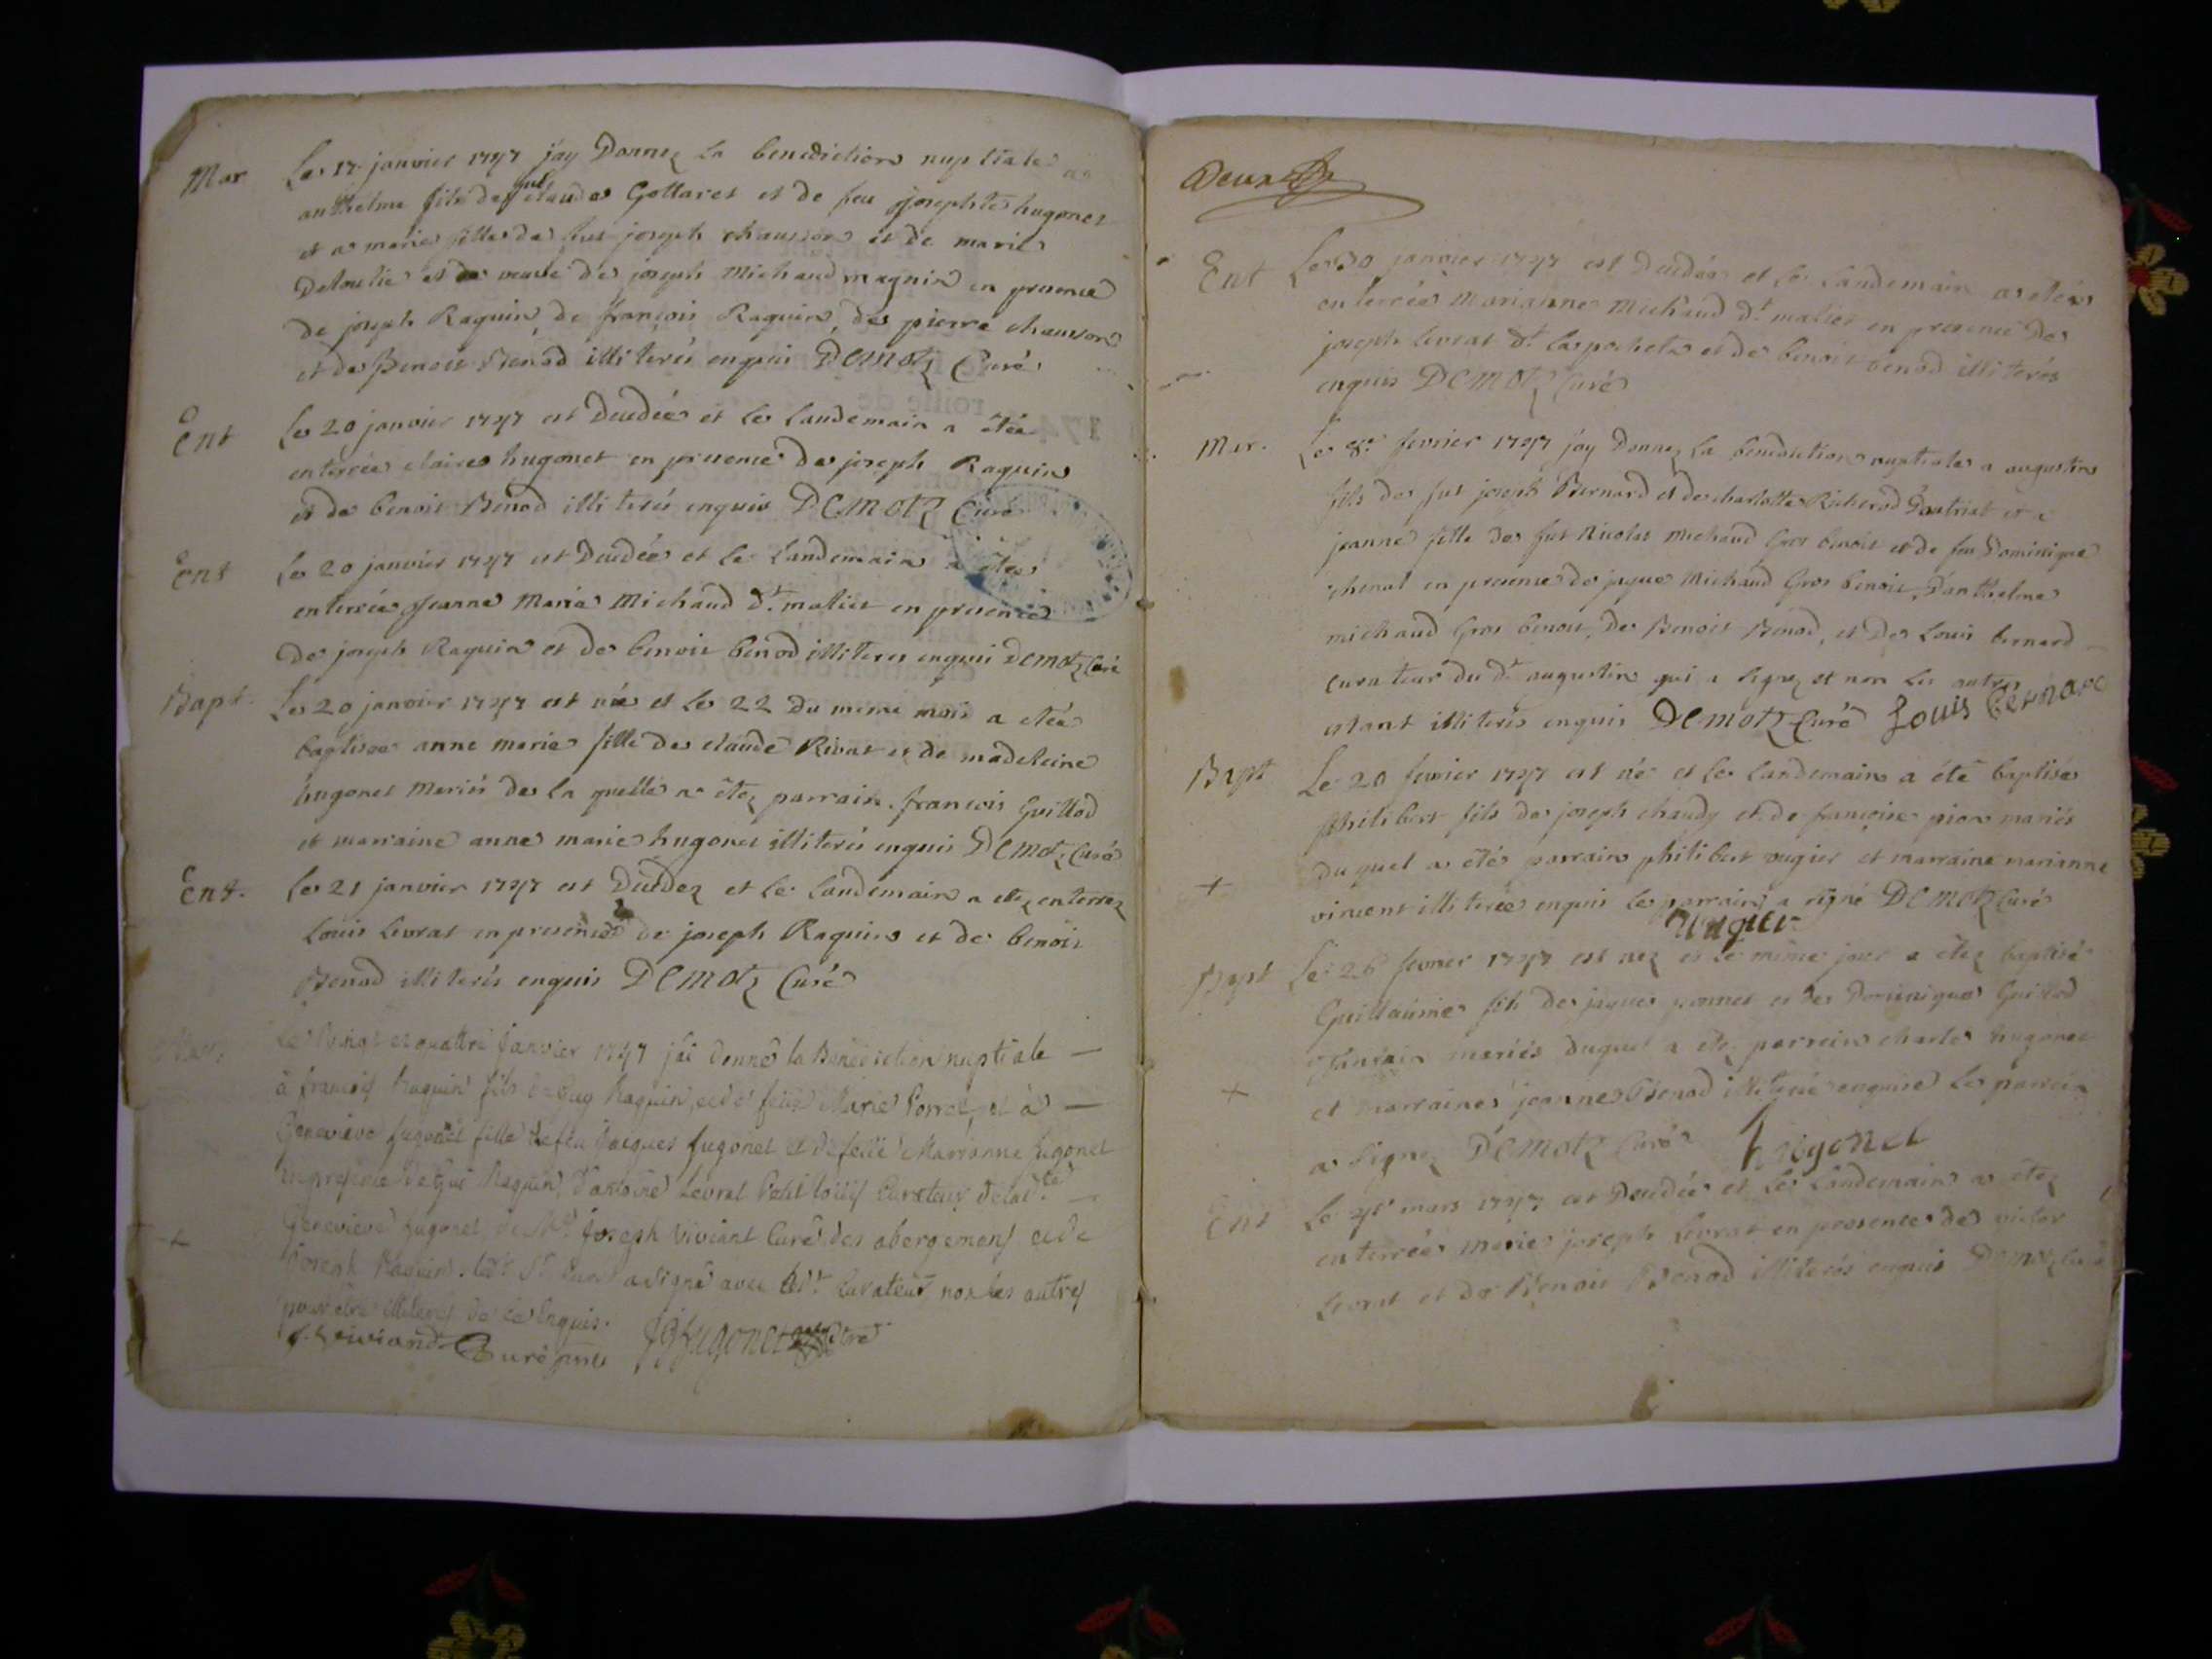 Mar Le 17 janvier 1747 j'ay Donnez la benediction nuptiale a
anthelme fils de feu claude Gottaret et de feu josephte hugonet
et a marie fille de fut joseph chausson et de marie
Deloulie et de veuve de joseph Michaud magnin en presence
de joseph Raquin, de françois Raquin, de pierre chausson
et de Benoit Benod illiterés enquis DEMOtz Curé
Ent Le 20 janvier 1747 est decedée et le landemain a étée
enterrée claire hugonet en presence de joseph Raquin
et de benoit Benod illiterés enquis DEMOtz Curé
Ent Le 20 janvier 1747 est Decedée et le landemain a étée
enterrée Jeanne Marie Michaud dt. maliet en presence
de joseph Raquin et de benoit benod illiteres enquis DEMOtz Curé
Bapt. Le 20 janvier 1747 est née et le 22 du meme mois a etée
baptisee anne marie fille de claude Rivat et de madeleine
hugonet Mariés de la quelle a étez parrain françois Guillod
et marraine anne marie hugonet illiterés enquis DEMOtz Curé
Ent. Le 21 janvier 1747 est Decedez et le landemain a etez enterrez
Louis Levrat en presence de joseph Raquin et de benoit
Benod illiterés enquis DEMOtz Curé
Le Vingt et quattre Janvier 1747 j'ai donné la Benediction nuptiale —
à françois Raquin fils de Guy Raquin, et de feüe Marie Porret, et à —
Genevieve fugonet fille de feu Jacques fugonet et de feüe Marianne fugonet
en presence de Gui Raquin, d'antoine Levrat Petit Curateur de lad.te —
Genevieve fugonet de Mr. Joseph Viviant Curé des abergemens et de
Joseph Raquin. led. Sr. Curé a signé avec led.t Curateur non les autres
pour être illiterés de ce Enquis.
Viviand Curé fugonet
Deux
Ent Le 30 janvier 1747 est decedée et le landemain a etée
enterrée Marianne Michaud dt. maliet en presence de
joseph levrat dt. et de benoit benod illiterés
enquis DEMOtz Curé
Mar. Le 8e fevrier 1747 j'ay Donnez la benediction nuptiale a augustin
fils de fut joseph Bernard et de charlotte Richerod et a
jeanne fille de fut Nicolas Michaud Gros benoit et de feu Dominique
chenal en presence de jaque Michaud Gros benoit, d'anthelme
michaud Gros benoit, de Benoit Benod, et de Louis bernard
curateur du dt. augustin qui a signez et non les autres
etant illiterés enquis DEMOtz Curé Louis Bernard
Bapt Le 20 fevrier 1747 est né et le landemain a été baptisé
philibert fils de joseph chaudy et de françoise pion mariés
du quel a étés parrain philibert vugier et marraine marianne
vincent illiterée enquis le parrain a signé DEMOtz Curé
Vugier
Bapt Le 26 fevrier 1747 est nez et le même jour a étez baptisé
Guillaume fils de jaques ponnet et de Dominique Guillod
mariés duquel a étez parrein charle hugonet
et marraine jeanne Benod illiterée enquise le parrein
a signez DEMOtz Curé hugonet
Ent Le mars 1747 est Decedée et le landemain a étez
enterrée marie joseph Levrat en presence de victor
Levrat et de Benoit Benod illiterés enquis DEMOtz Curé